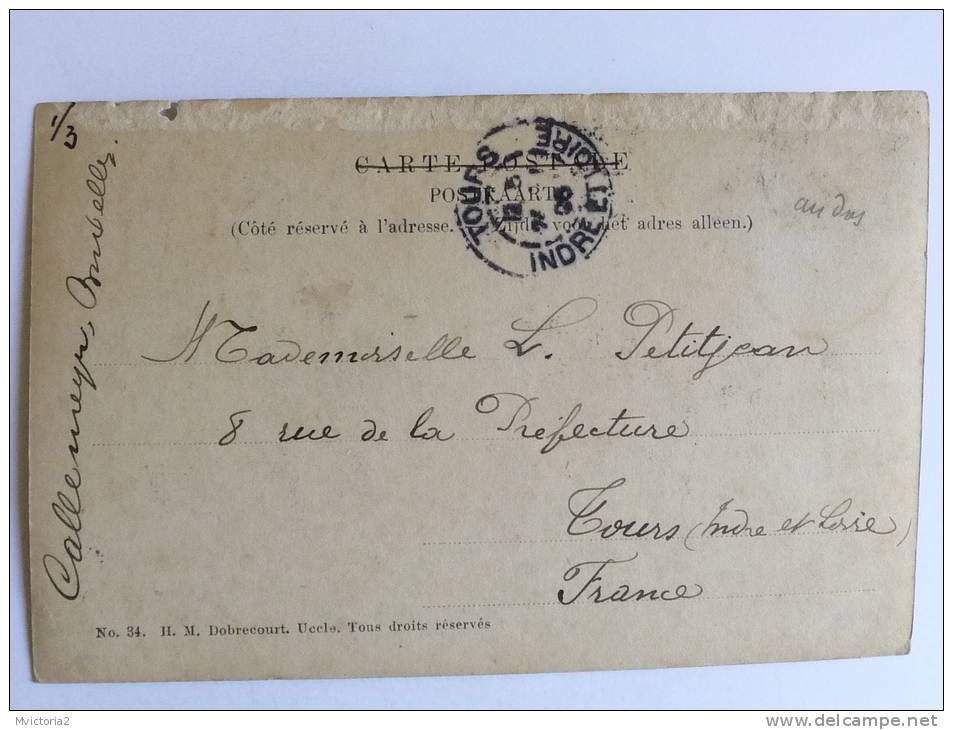 1/3
Callemeyn, Bruxelles.
CARTE POSTALE
POSTKAART
(Côté réservé à l'adresse. Zijde voor het adres alleen.)
TOURS
INDRE ET LOIRE
au dos
Mademoiselle L. Petitjean
8 rue de la Préfecture
Tours (Indre et Loire)
France
No. 34. H. M. Dobrecourt. Uccle. Tous droits réservés
Mvictoria2
delcampe.net